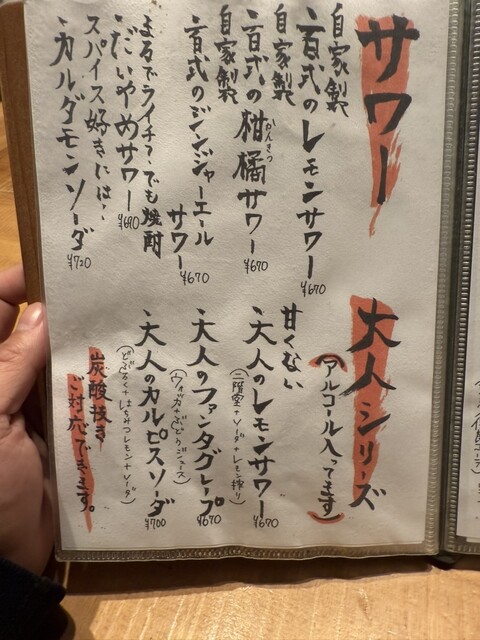 サワー
自家製
二百式のレモンサワー ¥670
自家製
二百式の柑橘サワー ¥670
かんきつ
自家製
二百式のジンジャーエール
サワー ¥670
まるでライチ？でも焼酎
だいやめサワー ¥690
スパイス好きには、
カルダモンソーダ ¥720
大人シリーズ
(アルコール入ってます)
甘くない
大人のレモンサワー ¥670
(二階堂+ソーダ+レモン搾り)
大人のファンタグレープ ¥670
(ウォッカ+ぶどうジュース)
大人のカルピスソーダ ¥700
(どぶろく+はちみつレモン+ソーダ)
炭酸抜き
ご対応できます。